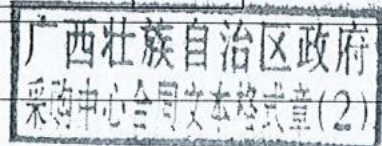 广西壮族自治区政府
采购中心合同文本格式章(2)